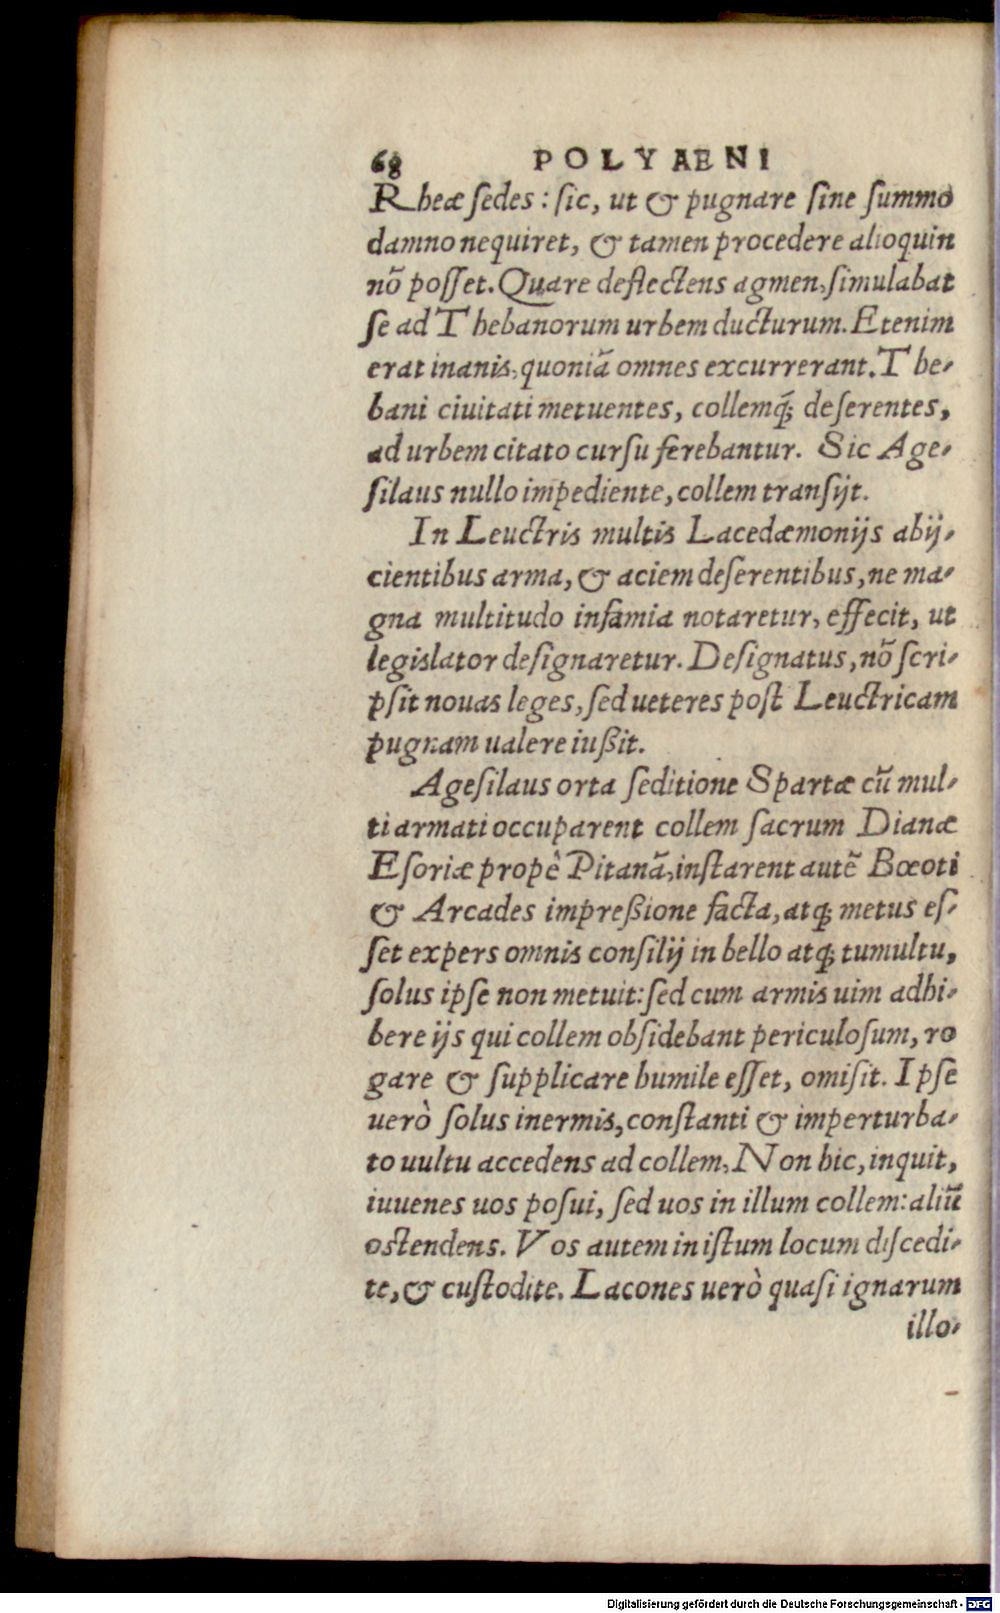 68 POLYAENI
Rheæ ſedes: ſic, ut & pugnare ſine ſummo
damno nequiret, & tamen procedere alioquin
nõ poſſet. Quare deflectens agmen, ſimulabat
ſe ad Thebanorum urbem ducturum. Etenim
erat inanis, quoniã omnes excurrerant. The-
bani ciuitati metuentes, collemq́; deſerentes,
ad urbem citato curſu ferebantur. Sic Age-
ſilaus nullo impediente, collem tranſijt.
In Leuctris multis Lacedæmonijs abij-
cientibus arma, & aciem deſerentibus, ne ma-
gna multitudo infamia notaretur, effecit, ut
legislator deſignaretur. Deſignatus, nõ ſcri-
pſit nouas leges, ſed ueteres poſt Leuctricam
pugnam ualere iußit.
Ageſilaus orta ſeditione Spartæ cũ mul-
ti armati occuparent collem ſacrum Dianæ
Eſoriæ propè Pitanã, inſtarent autẽ Bœoti
& Arcades impreßione facta, atq; metus eſ-
ſet expers omnis conſilij in bello atq; tumultu,
ſolus ipſe non metuit: ſed cum armis uim adhi-
bere ijs qui collem obſidebant periculoſum, ro
gare & ſupplicare humile eſſet, omiſit. Ipſe
uerò ſolus inermis, conſtanti & imperturba-
to uultu accedens ad collem, Non hic, inquit,
iuuenes uos poſui, ſed uos in illum collem: aliũ
oſtendens. Vos autem in iſtum locum diſcedi-
te, & cuſtodite. Lacones uerò quaſi ignarum
illo-
Digitalisierung gefördert durch die Deutsche Forschungsgemeinschaft - DFG